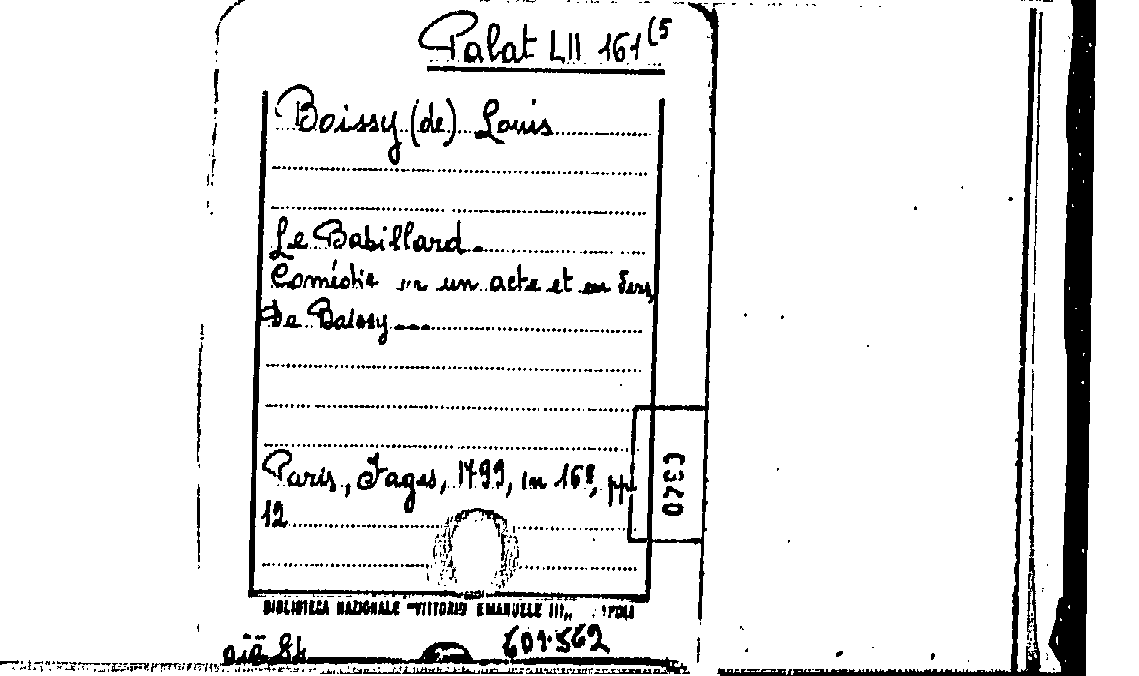 Palat LII 161(5
Boissy (de) Louis
Le Babillard.
Comédie en un acte et en vers,
De Boissy ---
Paris, Fages, 1799, in 16º, pp
12
0793
BIBLIOTECA NAZIONALE "VITTORIO EMANUELE III"
601562